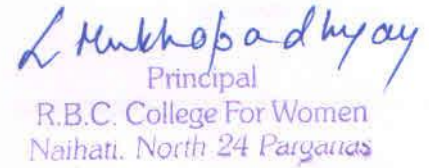 L Mukhopadhyay
Principal
R.B.C. College For Women
Naihati. North 24 Parganas